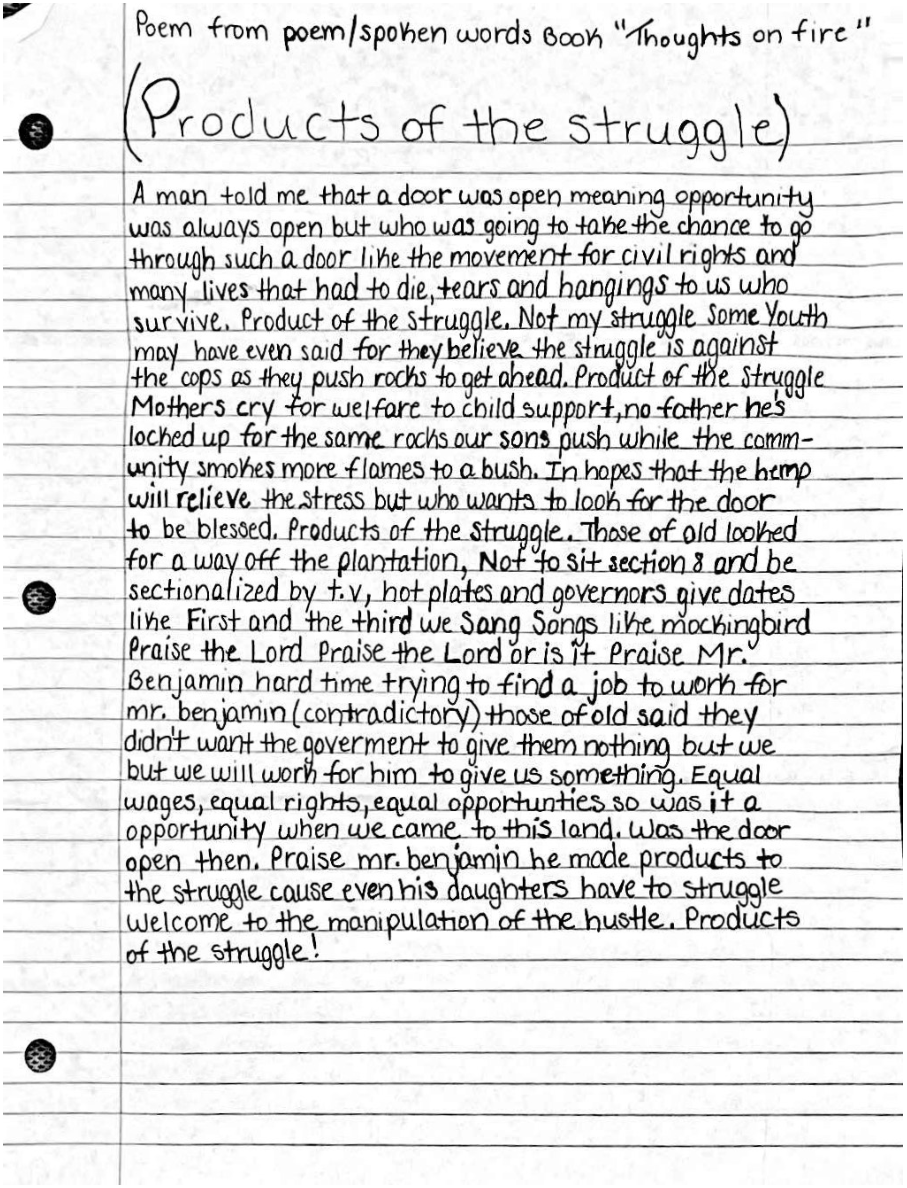 Poem from poem/spoken words Book "Thoughts on fire"
(Products of the struggle)
A man told me that a door was open meaning opportunity
was always open but who was going to take the chance to go
through such a door like the movement for civil rights and
many lives that had to die, tears and hangings to us who
survive. Product of the struggle. Not my struggle Some Youth
may have even said for they believe the struggle is against
the cops as they push rocks to get ahead. Product of the Struggle
Mothers cry for welfare to child support, no father he's
locked up for the same rocks our sons push while the comm-
unity smokes more flames to a bush. In hopes that the hemp
will relieve the stress but who wants to look for the door
to be blessed. Products of the Struggle. Those of old looked
for a way off the plantation, Not to sit section 8 and be
sectionalized by t.v, hot plates and governors give dates
like First and the third we Sang Songs like mockingbird
Praise the Lord Praise the Lord or is it Praise Mr.
Benjamin hard time trying to find a job to work for
mr. benjamin (contradictory) those of old said they
didn't want the goverment to give them nothing but we
but we will work for him to give us something. Equal
wages, equal rights, equal opportunties so was it a
opportunity when we came to this land. Was the door
open then. Praise mr. benjamin he made products to
the struggle cause even his daughters have to struggle
welcome to the manipulation of the hustle. Products
of the struggle!